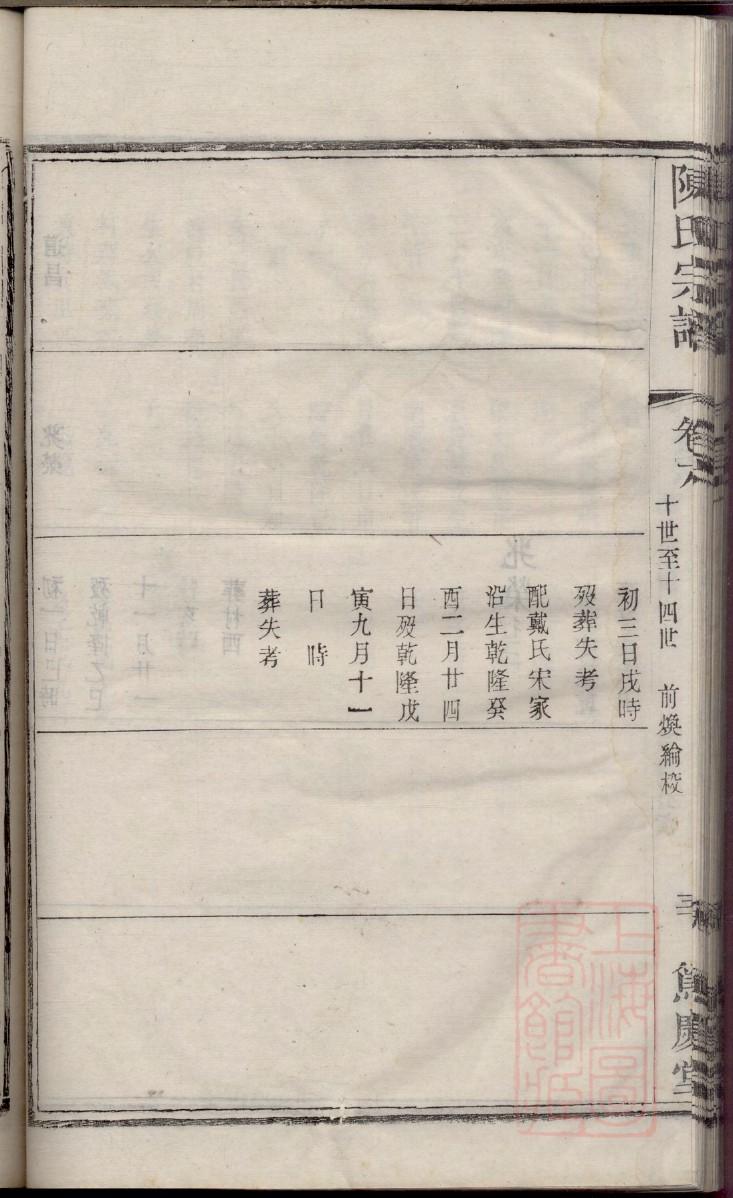 陳氏宗譜
卷六
十世至十四世 前煥綸校
三
慶堂
初三日戌時
歿葬失考
配戴氏宋家
沿生乾隆癸
酉二月廿四
日歿乾隆戊
寅九月十一
日 時
葬失考
上海圖
書館藏